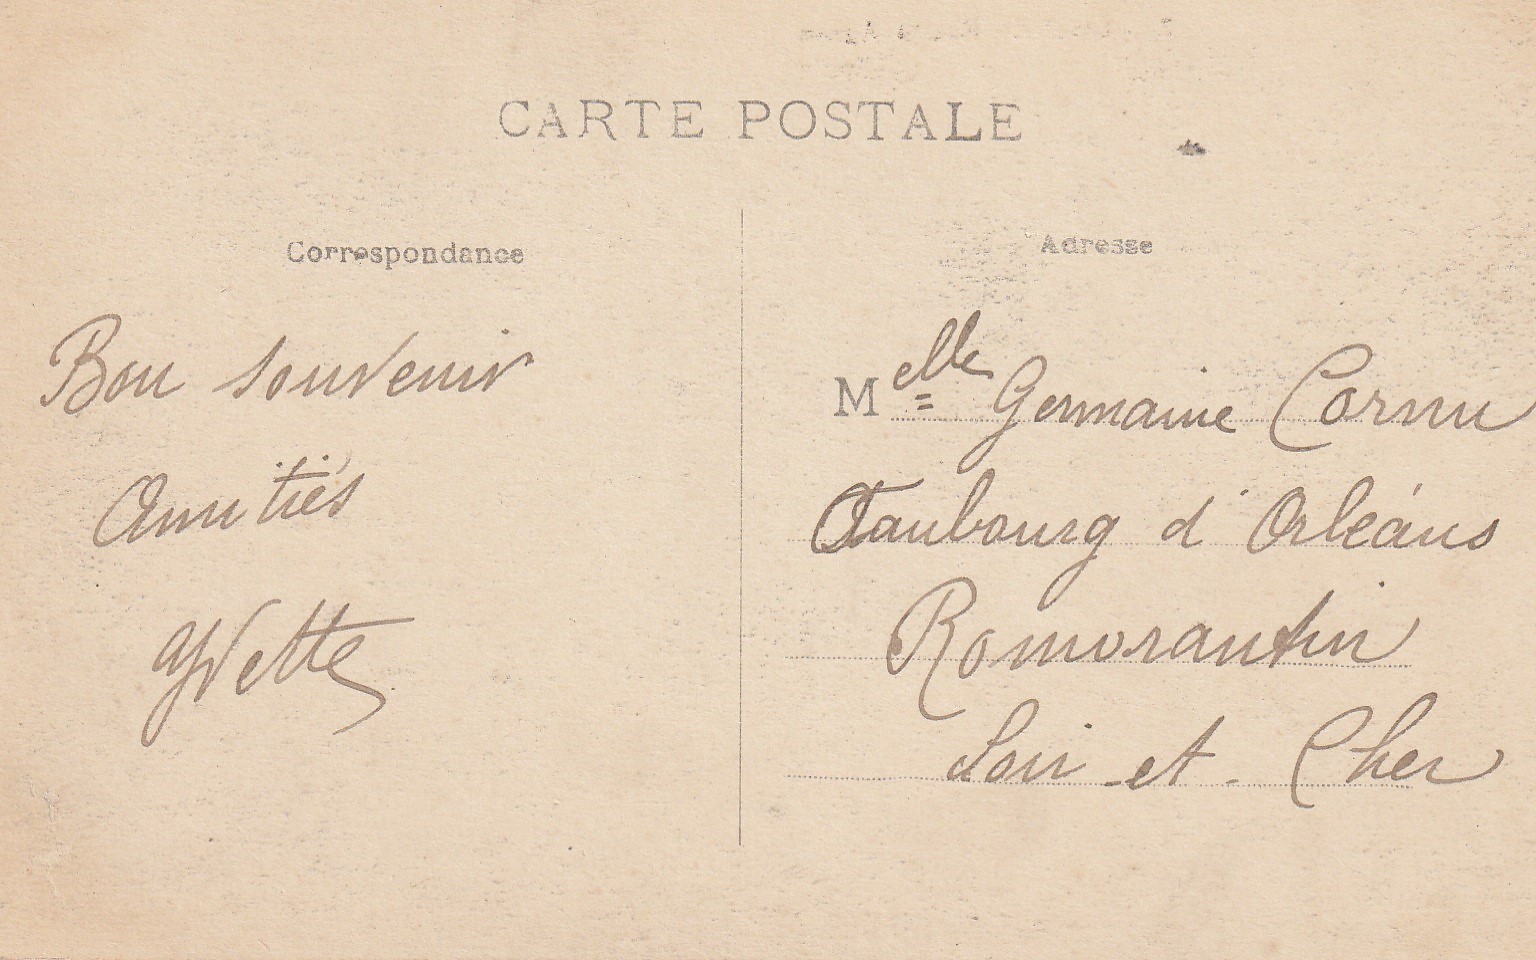 CARTE POSTALE
Correspondance
Bon souvenir
Amitiés
Yvette
Adresse
Melle Germaine Cornu
Faubourg d'Orléans
Romorantin
Loir-et-Cher